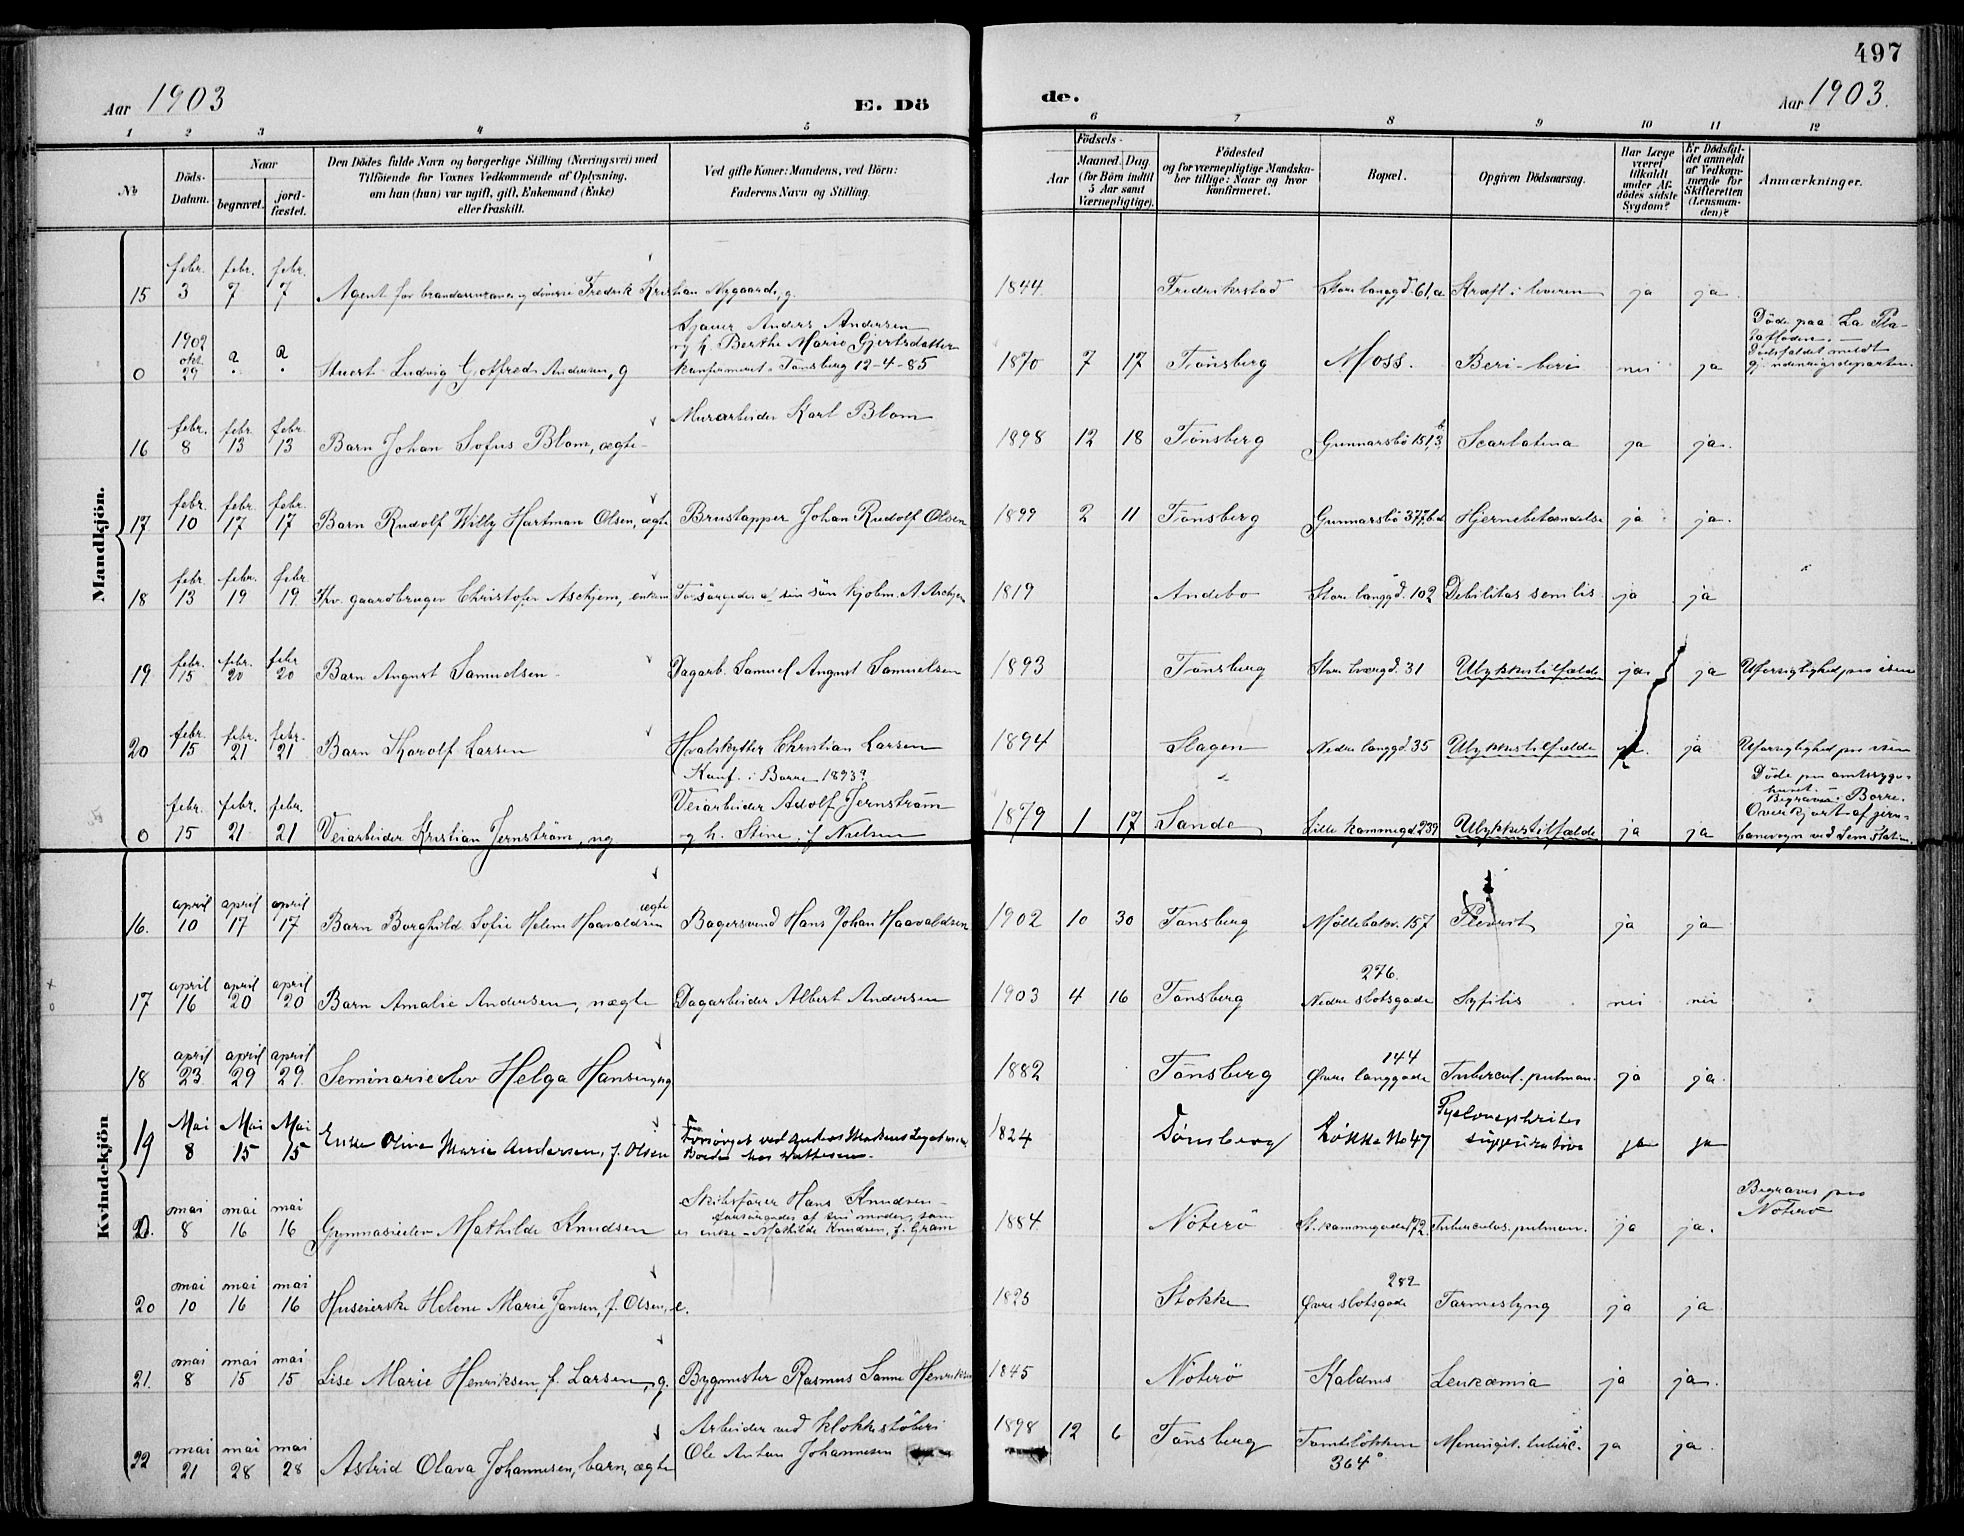 497
Aar 1903
E. Dö
de.
Aar 1903.
1 2 3 4 5 6 7 8 9 10 11 12
No
Döds-Datum.
Naar
begravet.
jord-fæstet.
Den Dödes fulde Navn og borgerlige Stilling (Næringsvei) med
Tilföiende for Voxnes Vedkommende af Oplysning,
om han (hun) var ugift, gift, Enkemand (Enke)
eller fraskilt.
Ved gifte Koner: Mandens, ved Börn:
Faderens Navn og Stilling.
Födsels-
Aar
Maaned. Dag
(for Börn indtil
5 Aar samt
Værnepligtige).
Födested
og for værnepligtige Mandsku-
ber tillige: Naar og hvor
konfirmeret.
Bopæl.
Opgiven Dödsaarsag.
Har Læge
været
tilkaldt
under Af-
dödes sidste
Sygdom?
Er Dödsfal-
det anmeldt
af Vedkom-
mende for
Skifteretten
(Lensman-
den)?
Anmærkninger.
Mandkjön.
15 febr. 3 febr. 7 febr. 7 Agent for brandassurance og diverse Fredrik Kristian Nygaard, g. 1844 Fredrikstad Store langgd. 61,a Kræft i leveren ja ja
Sjauer Anders Andersen
og h. Berthe Marie Gjertsdatter
0 1902 okt. 29 a a Stuert Ludvig Gotfred Andersen, g konfirmeret i Tönsberg 12-4-85 1870 7 17 Tönsberg Moss. Beri-beri nei ja
Döde paa La Pla-
tafloden.-
Dödsfaldet meldt
gj. udenrigsdeparten.
16 febr. 8 febr. 13 febr. 13 Barn Johan Sofus Blom, ægte Murarbeider Karl Blom 1898 12 18 Tönsberg Gunnarsbö 151,3 b Scarlatina ja ja.
17 febr. 10 febr. 17 febr. 17 Barn Rudolf Willy Hartman Olsen, ægte Brustapper Johan Rudolf Olsen 1899 2 11 Tönsberg Gunnarsbö 377, Hjernebetændelse ja ja.
18 febr. 13 febr. 19 febr. 19 Fhv. gaardbruger Christofer Aschjem, enkem Forsörgedes af sin sön kjöbm. A Aschjem 1819 Andebo Store langgd. 102 Debilitas senilis ja ja
19 febr. 15 febr. 20 febr. 20 Barn August Samuelsen Dagarb. Samuel August Samuelsen 1893 Tönsberg Store tværgd. 31 Ulykkestilfælde ja ja Uforsigtighed paa isen
20 febr. 15 febr. 21 febr. 21 Barn Thorolf Larsen Hvalskytter Christian Larsen 1894 Slagen Nedre langgd. 35 Ulykkestilfælde ja Uforsigtighed paa isen
Konf. i Borre 1893?
Veiarbeider Adolf Jernström
0 febr. 15 febr. 21 febr. 21 Veiarbeider Kristian Jernström, ug og h. Stine, f Nielsen 1879 1 17 Sande Lille kammegd 239 Ulykkestilfælde ja ja
Döde paa amtssyge-
huset.-
Begraves i Borre.
Overkjört af jern-
banevogn ved Sem station.
Kvindekjön
16. april 10 april 17 april 17 Barn Borghild Sofie Helene Haavaldsen ægte Bagersvend Hans Johan Haavaldsen 1902 10 30 Tönsberg Möllebakk. 157 Plevrit ja ja
17 april 16 april 20 april 20 Barn Amalie Andersen, uægte Dagarbeider Albert Andersen 1903 4 16 Tönsberg 276. Nedre slotsgade Syfilis nei nei
18 april 23 april 29 april 29. Seminarieelev Helga Hansen, ug 1882 Tönsberg 144 Övre langgade Tubercul. pulman. ja ja.
19 Mai 8 Mai 15 Mai 15 Enke Oline Marie Andersen, f. Olsen Forsörget ved Anders Madsens Legat
Boede hos 1824 Tönsberg Lökke No 47 Pyelonephrites suppurativa ja ja
0. mai 8 mai 16 mai 16 Gymnasieelev Mathilde Knudsen Skibsförer Hans Knudsen
forsörgedes af sin moder, som
er enke - Mathilde Knudsen, f. Gram 1884 Nöterö St. kammegade 172. Tuberculos. pulman. ja ja. Begraves paa Nöterö
20 mai 10 mai 16 mai 16 Huseierske Helene Marie Jansen, f. Olsen, e. 1825 Stokke 282 Övre slotsgade Tarmeslyng ja ja
21. mai 8 mai 15 mai 15 Lise Marie Henriksen, f. Larsen, g. Bygmester Rasmus Sanne Henriksen 1845 Nöterö Kaldnes Leukæmia ja ja.
22 mai 21 mai 28 mai 28 Astrid Olava Johannesen, barn, ægte Arbeider ved klokkestöberi
Ole Anton Johannesen 1898 12 6 Tönsberg Tomtelökken 364 Meningit. tuberc. ja ja.